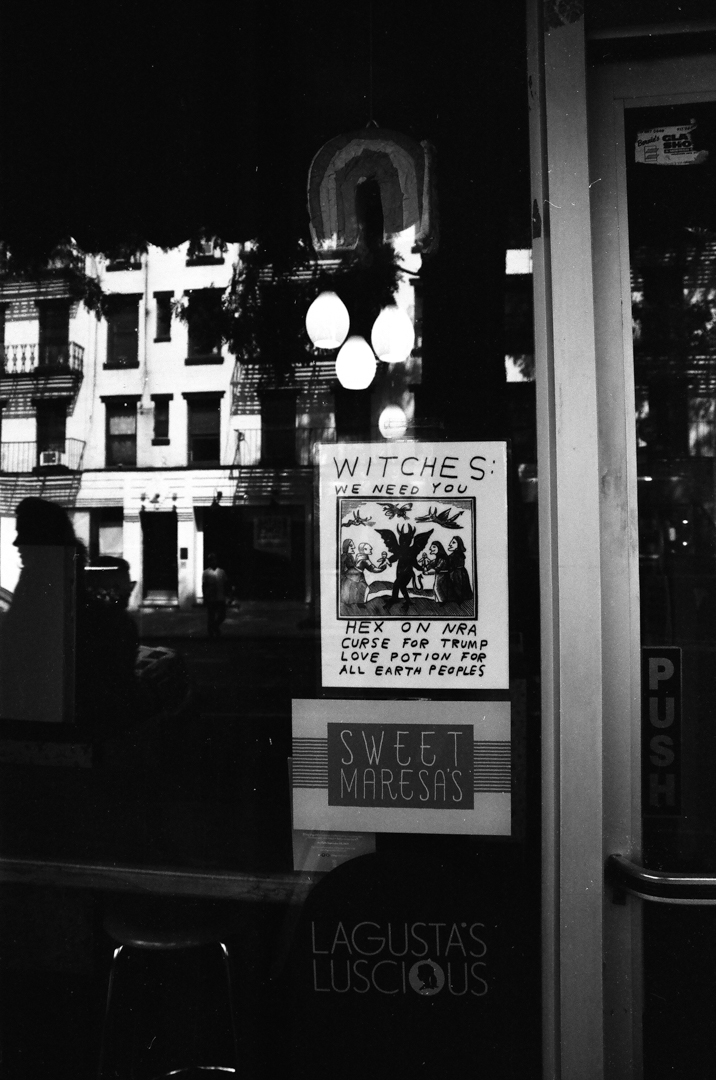 WITCHES:
WE NEED YOU
HEX ON NRA
CURSE FOR TRUMP
LOVE POTION FOR
ALL EARTH PEOPLES
SWEET
MARESA'S
LAGUSTA'S
LUSCIOUS
PUSH